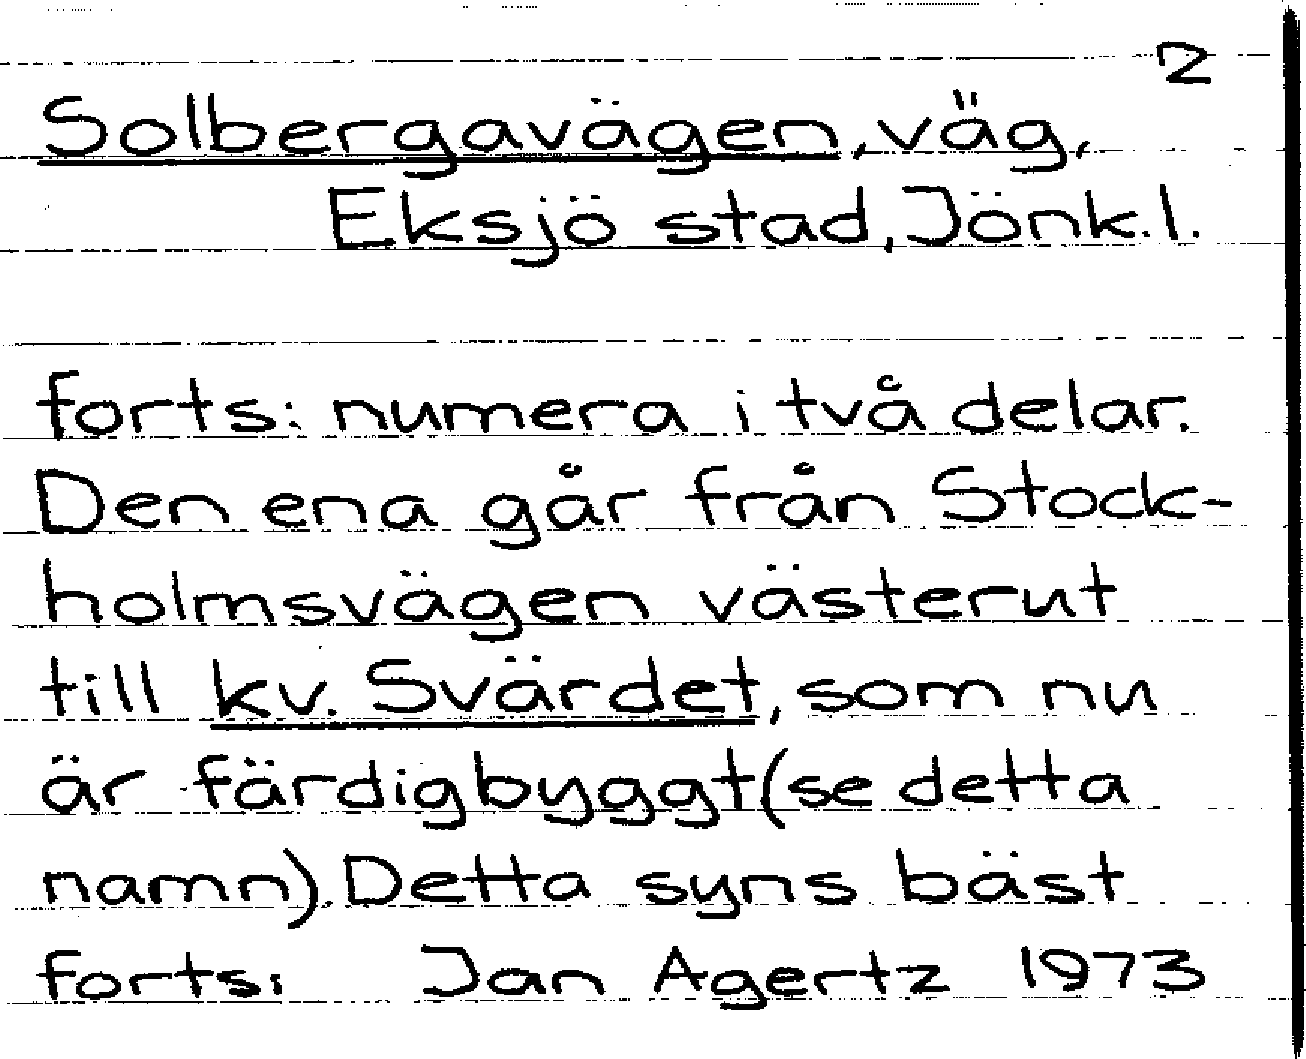 2
Solbergavägen, väg,
Eksjö stad, Jönk.l.
forts: numera i två delar.
Den ena går från Stock-
holmsvägen västerut
till kv. Svärdet, som nu
är färdigbyggt (se detta
namn). Detta syns bäst
forts: Jan Agertz 1973